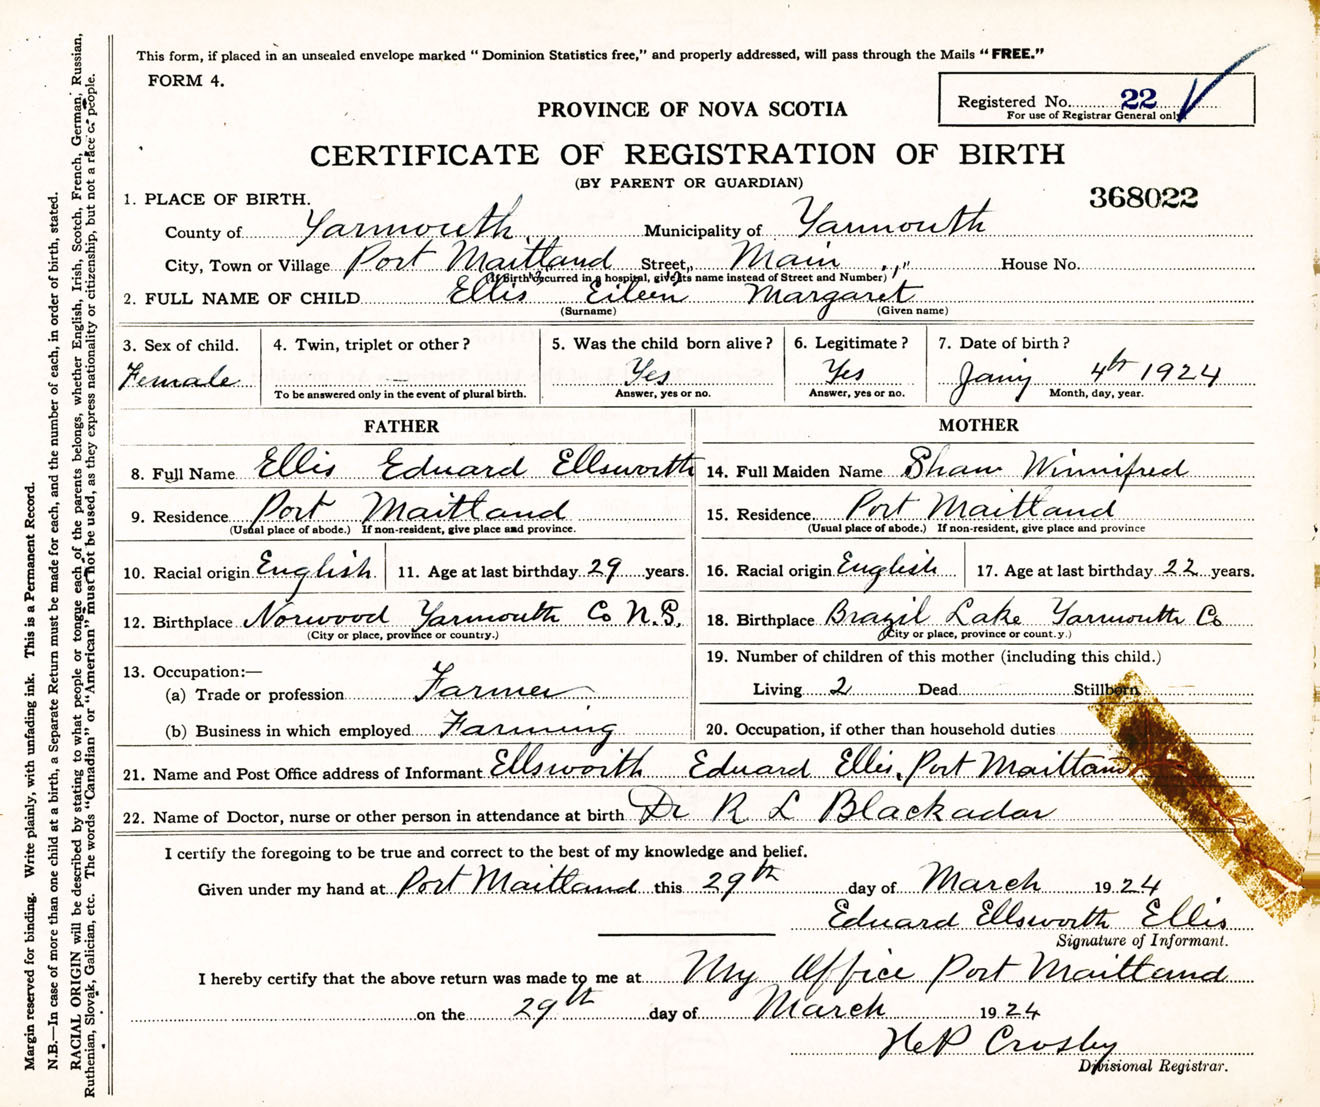 This form, if placed in an unsealed envelope marked "Dominion Statistics free," and properly addressed, will pass through the Mails "FREE."
FORM 4.
Registered No. 22
For use of Registrar General only.
PROVINCE OF NOVA SCOTIA
CERTIFICATE OF REGISTRATION OF BIRTH
(BY PARENT OR GUARDIAN)
368022
1. PLACE OF BIRTH.
County of Yarmouth Municipality of Yarmouth
City, Town or Village Port Maitland Street, Main " House No.
(If Birth occurred in a hospital, give its name instead of Street and Number)
2. FULL NAME OF CHILD Ellis Eileen Margaret
(Surname) (Given name)
3. Sex of child. 4. Twin, triplet or other? 5. Was the child born alive? 6. Legitimate? 7. Date of birth?
Female — Yes Yes Jany 4th 1924
To be answered only in the event of plural birth. Answer, yes or no. Answer, yes or no. Month, day, year.
FATHER MOTHER
8. Full Name Ellis Eduard Ellsworth 14. Full Maiden Name Shaw Winnifred
9. Residence Port Maitland 15. Residence Port Maitland
(Usual place of abode.) If non-resident, give place and province. (Usual place of abode.) If non-resident, give place and province
10. Racial origin English 11. Age at last birthday 29 years. 16. Racial origin English 17. Age at last birthday 22 years.
12. Birthplace Norwood Yarmouth Co N.S. 18. Birthplace Brazil Lake Yarmouth Co
(City or place, province or country.) (City or place, province or count.y.)
13. Occupation:— 19. Number of children of this mother (including this child.)
(a) Trade or profession Farmer Living 2 Dead Stillborn
(b) Business in which employed Farming 20. Occupation, if other than household duties
21. Name and Post Office address of Informant Ellsworth Eduard Ellis, Port Maitland
22. Name of Doctor, nurse or other person in attendance at birth Dr R L Blackadar
I certify the foregoing to be true and correct to the best of my knowledge and belief.
Given under my hand at Port Maitland this 29th day of March 1924
Eduard Ellsworth Ellis
Signature of Informant.
I hereby certify that the above return was made to me at My Office Port Maitland
on the 29th day of March 1924
Crosby
Divisional Registrar.
Margin reserved for binding. Write plainly, with unfading ink. This is a Permanent Record.
N.B.—In case of more than one child at a birth, a Separate Return must be made for each, and the number of each, in order of birth, stated.
RACIAL ORIGIN will be described by stating to what people or tongue each of the parents belongs, whether English, Irish, Scotch, French, German, Russian,
Ruthenian, Slovak, Galician, etc. The words "Canadian" or "American" must not be used, as they express nationality or citizenship, but not a race or people.